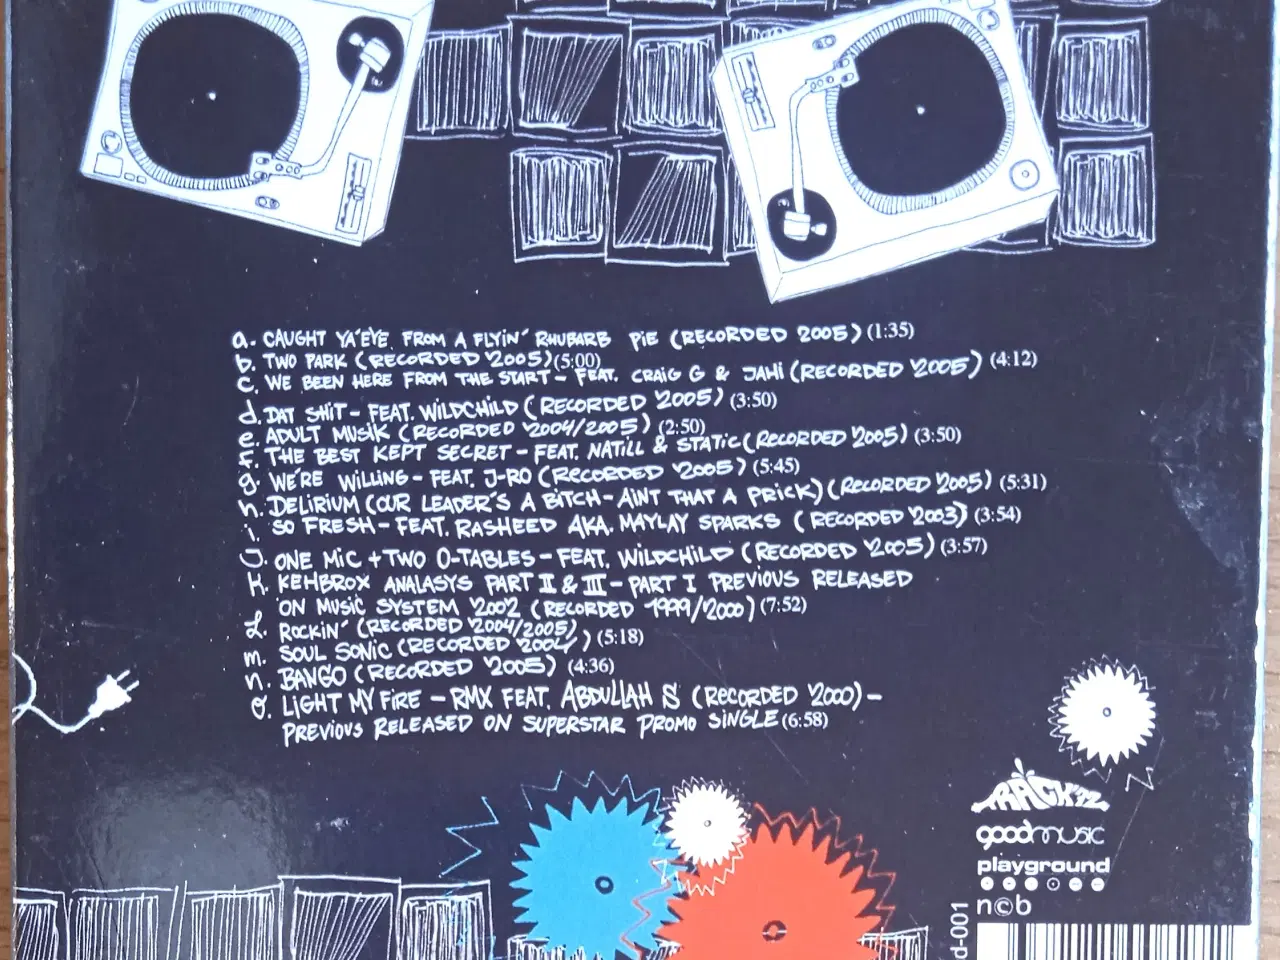 a. CAUGHT YA'EYE FROM A FLYIN' RHUBARB PIE (RECORDED 2005) (1:35)
b. TWO PARK (RECORDED 2005) (5:00)
c. WE BEEN HERE FROM THE START - FEAT. CRAIG G & JAHI (RECORDED 2005) (4:12)
d. DAT SHIT - FEAT. WILDCHILD (RECORDED 2005) (3:50)
e. ADULT MUSIK (RECORDED 2004/2005) (2:50)
f. THE BEST KEPT SECRET - FEAT. NATILL & STATIC (RECORDED 2005) (3:50)
g. WE'RE WILLING - FEAT. J-RO (RECORDED 2005) (5:45)
h. DELIRIUM (OUR LEADER'S A BITCH - AINT THAT A PRICK) (RECORDED 2005) (5:31)
i. SO FRESH - FEAT. RASHEED AKA. MAYLAY SPARKS (RECORDED 2003) (3:54)
J. ONE MIC + TWO O-TABLES - FEAT. WILDCHILD (RECORDED 2005) (3:57)
K. KEHBROX ANALASYS PART II & III - PART I PREVIOUS RELEASED
ON MUSIC SYSTEM 2002 (RECORDED 1999/2000) (7:52)
L. ROCKIN' (RECORDED 2004/2005)
m. SOUL SONIC (RECORDED 2004) (5:18)
n. BANGO (RECORDED 2005) (4:36)
O. LIGHT MY FIRE - RMX FEAT. ABDULLAH S (RECORDED 2000) -
PREVIOUS RELEASED ON SUPERSTAR PROMO SINGLE (6:58)
TRACK'72
goodmusic
playground
n©b
d-001